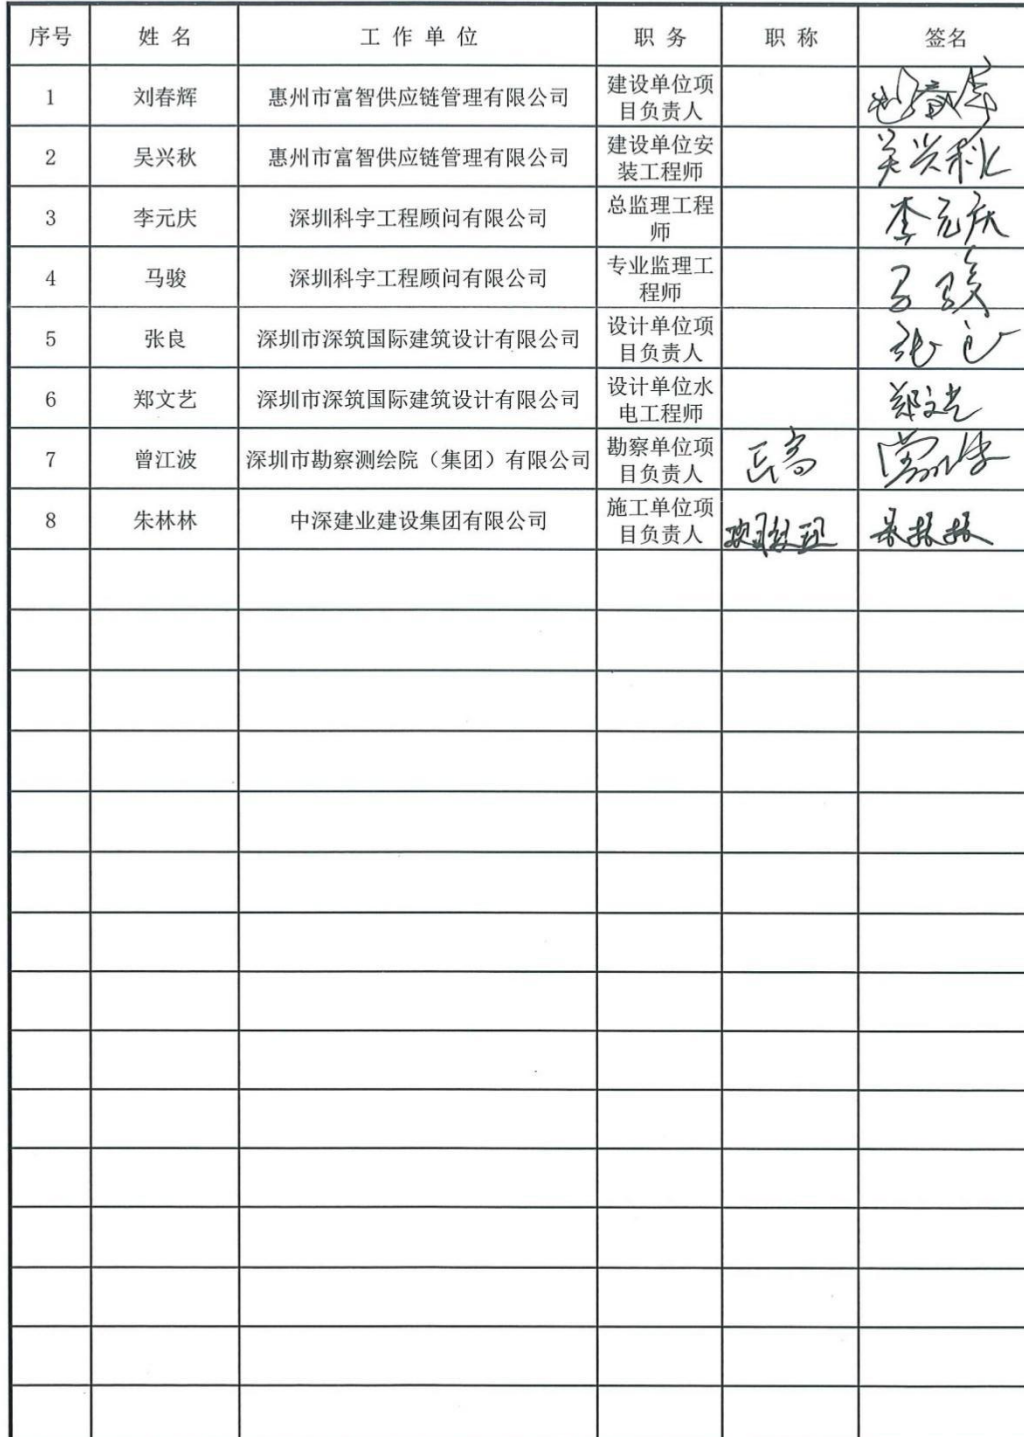 序号 姓 名 工 作 单 位 职 务 职 称 签名
1 刘春辉 惠州市富智供应链管理有限公司 建设单位项
目负责人
2 吴兴秋 惠州市富智供应链管理有限公司 建设单位安
装工程师 吴兴秋
3 李元庆 深圳科宇工程顾问有限公司 总监理工程
师 李元庆
4 马骏 深圳科宇工程顾问有限公司 专业监理工
程师 马骏
5 张良 深圳市深筑国际建筑设计有限公司 设计单位项
目负责人 张良
6 郑文艺 深圳市深筑国际建筑设计有限公司 设计单位水
电工程师 郑文艺
7 曾江波 深圳市勘察测绘院（集团）有限公司 勘察单位项
目负责人 正高
8 朱林林 中深建业建设集团有限公司 施工单位项
目负责人 项目经理 朱林林